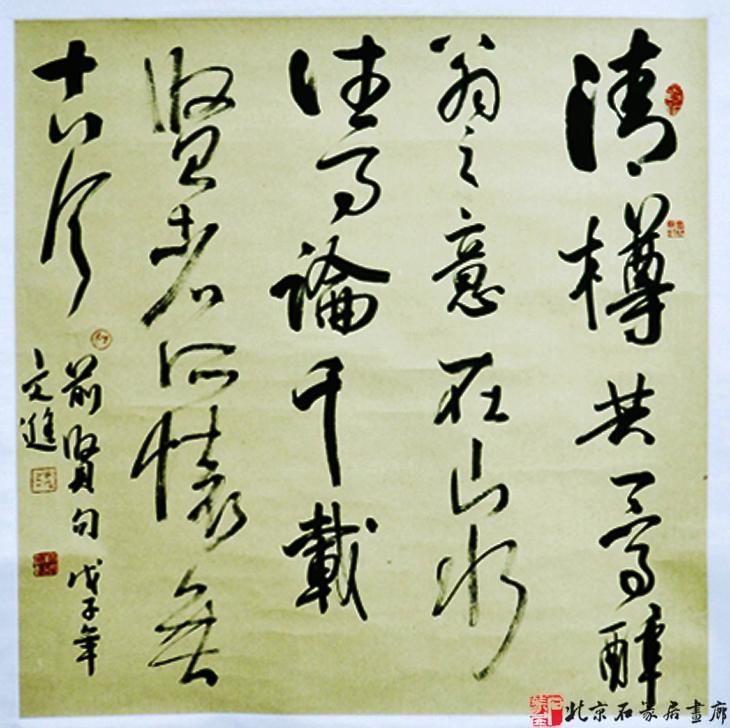 清樽共醉
翁之意在山水
往事論千載
賢者所懷無
古今
前賢句戊子年
文進
北京石家居畫廊